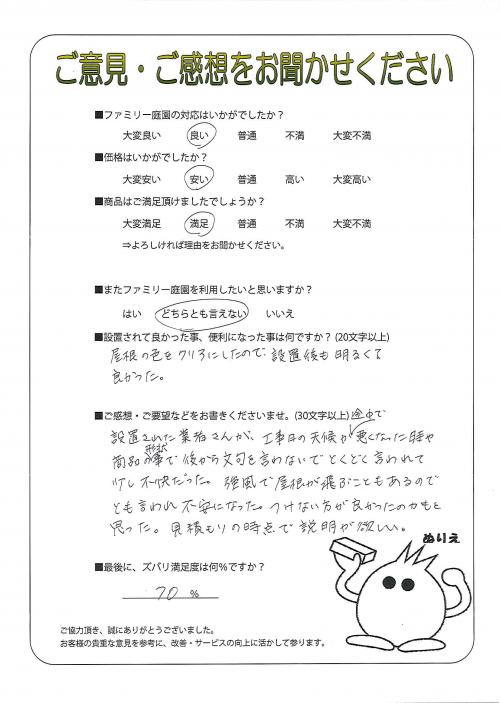 ご意見・ご感想をお聞かせください
■ファミリー庭園の対応はいかがでしたか？
大変良い 良い 普通 不満 大変不満
■価格はいかがでしたか？
大変安い 安い 普通 高い 大変高い
■商品はご満足頂けましたでしょうか？
大変満足 満足 普通 不満 大変不満
⇒よろしければ理由をお聞かせください。
■またファミリー庭園を利用したいと思いますか？
はい どちらとも言えない いいえ
■設置されて良かった事、便利になった事は何ですか？(20文字以上)
屋根の色をクリアにしたので、設置後も明るくて
良かった。
■ご感想・ご要望などをお書きくださいませ。(30文字以上)
設置された業者さんが、工事日の天候が途中で悪くなった時や
商品の形状の事で後から文句を言わないでとくどく言われて
少し不快だった。強風で屋根が飛ぶこともあるので
とも言われ不安になった。つけない方が良かったのかもと
思った。見積もりの時点で説明が欲しい。
ぬりえ
■最後に、ズバリ満足度は何％ですか？
70 %
ご協力頂き、誠にありがとうございました。
お客様の貴重な意見を参考に、改善・サービスの向上に活かして参ります。